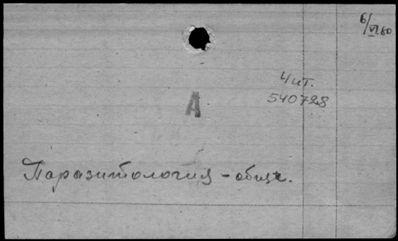 6/VI 60
Чит.
540728
А
Паразитология - общ.